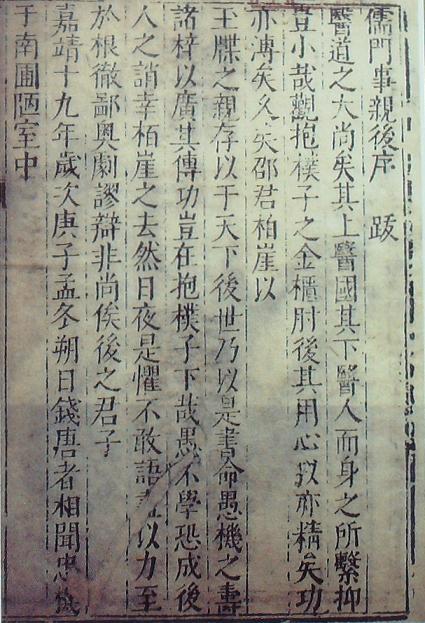 儒門事親後序　跋
醫道之大尚矣其上醫國其下醫人而身之所繫抑
豈小哉觀抱樸子之金櫃肘後其用心致亦精矣功
亦溥矣久矣邵君柏崖以
王牒之親存以干天下後世乃以是書命愚機之壽
諸梓以廣其傳功豈在抱樸子下哉愚不學恐成後
人之誚幸柏崖之去然日夜是懼不敢語盡以力至
於根徹鄙奧劇謬辯非尚俟後之君子
嘉靖十九年歲次庚子孟冬朔日錢唐者相聞忠
于南圃陋室中